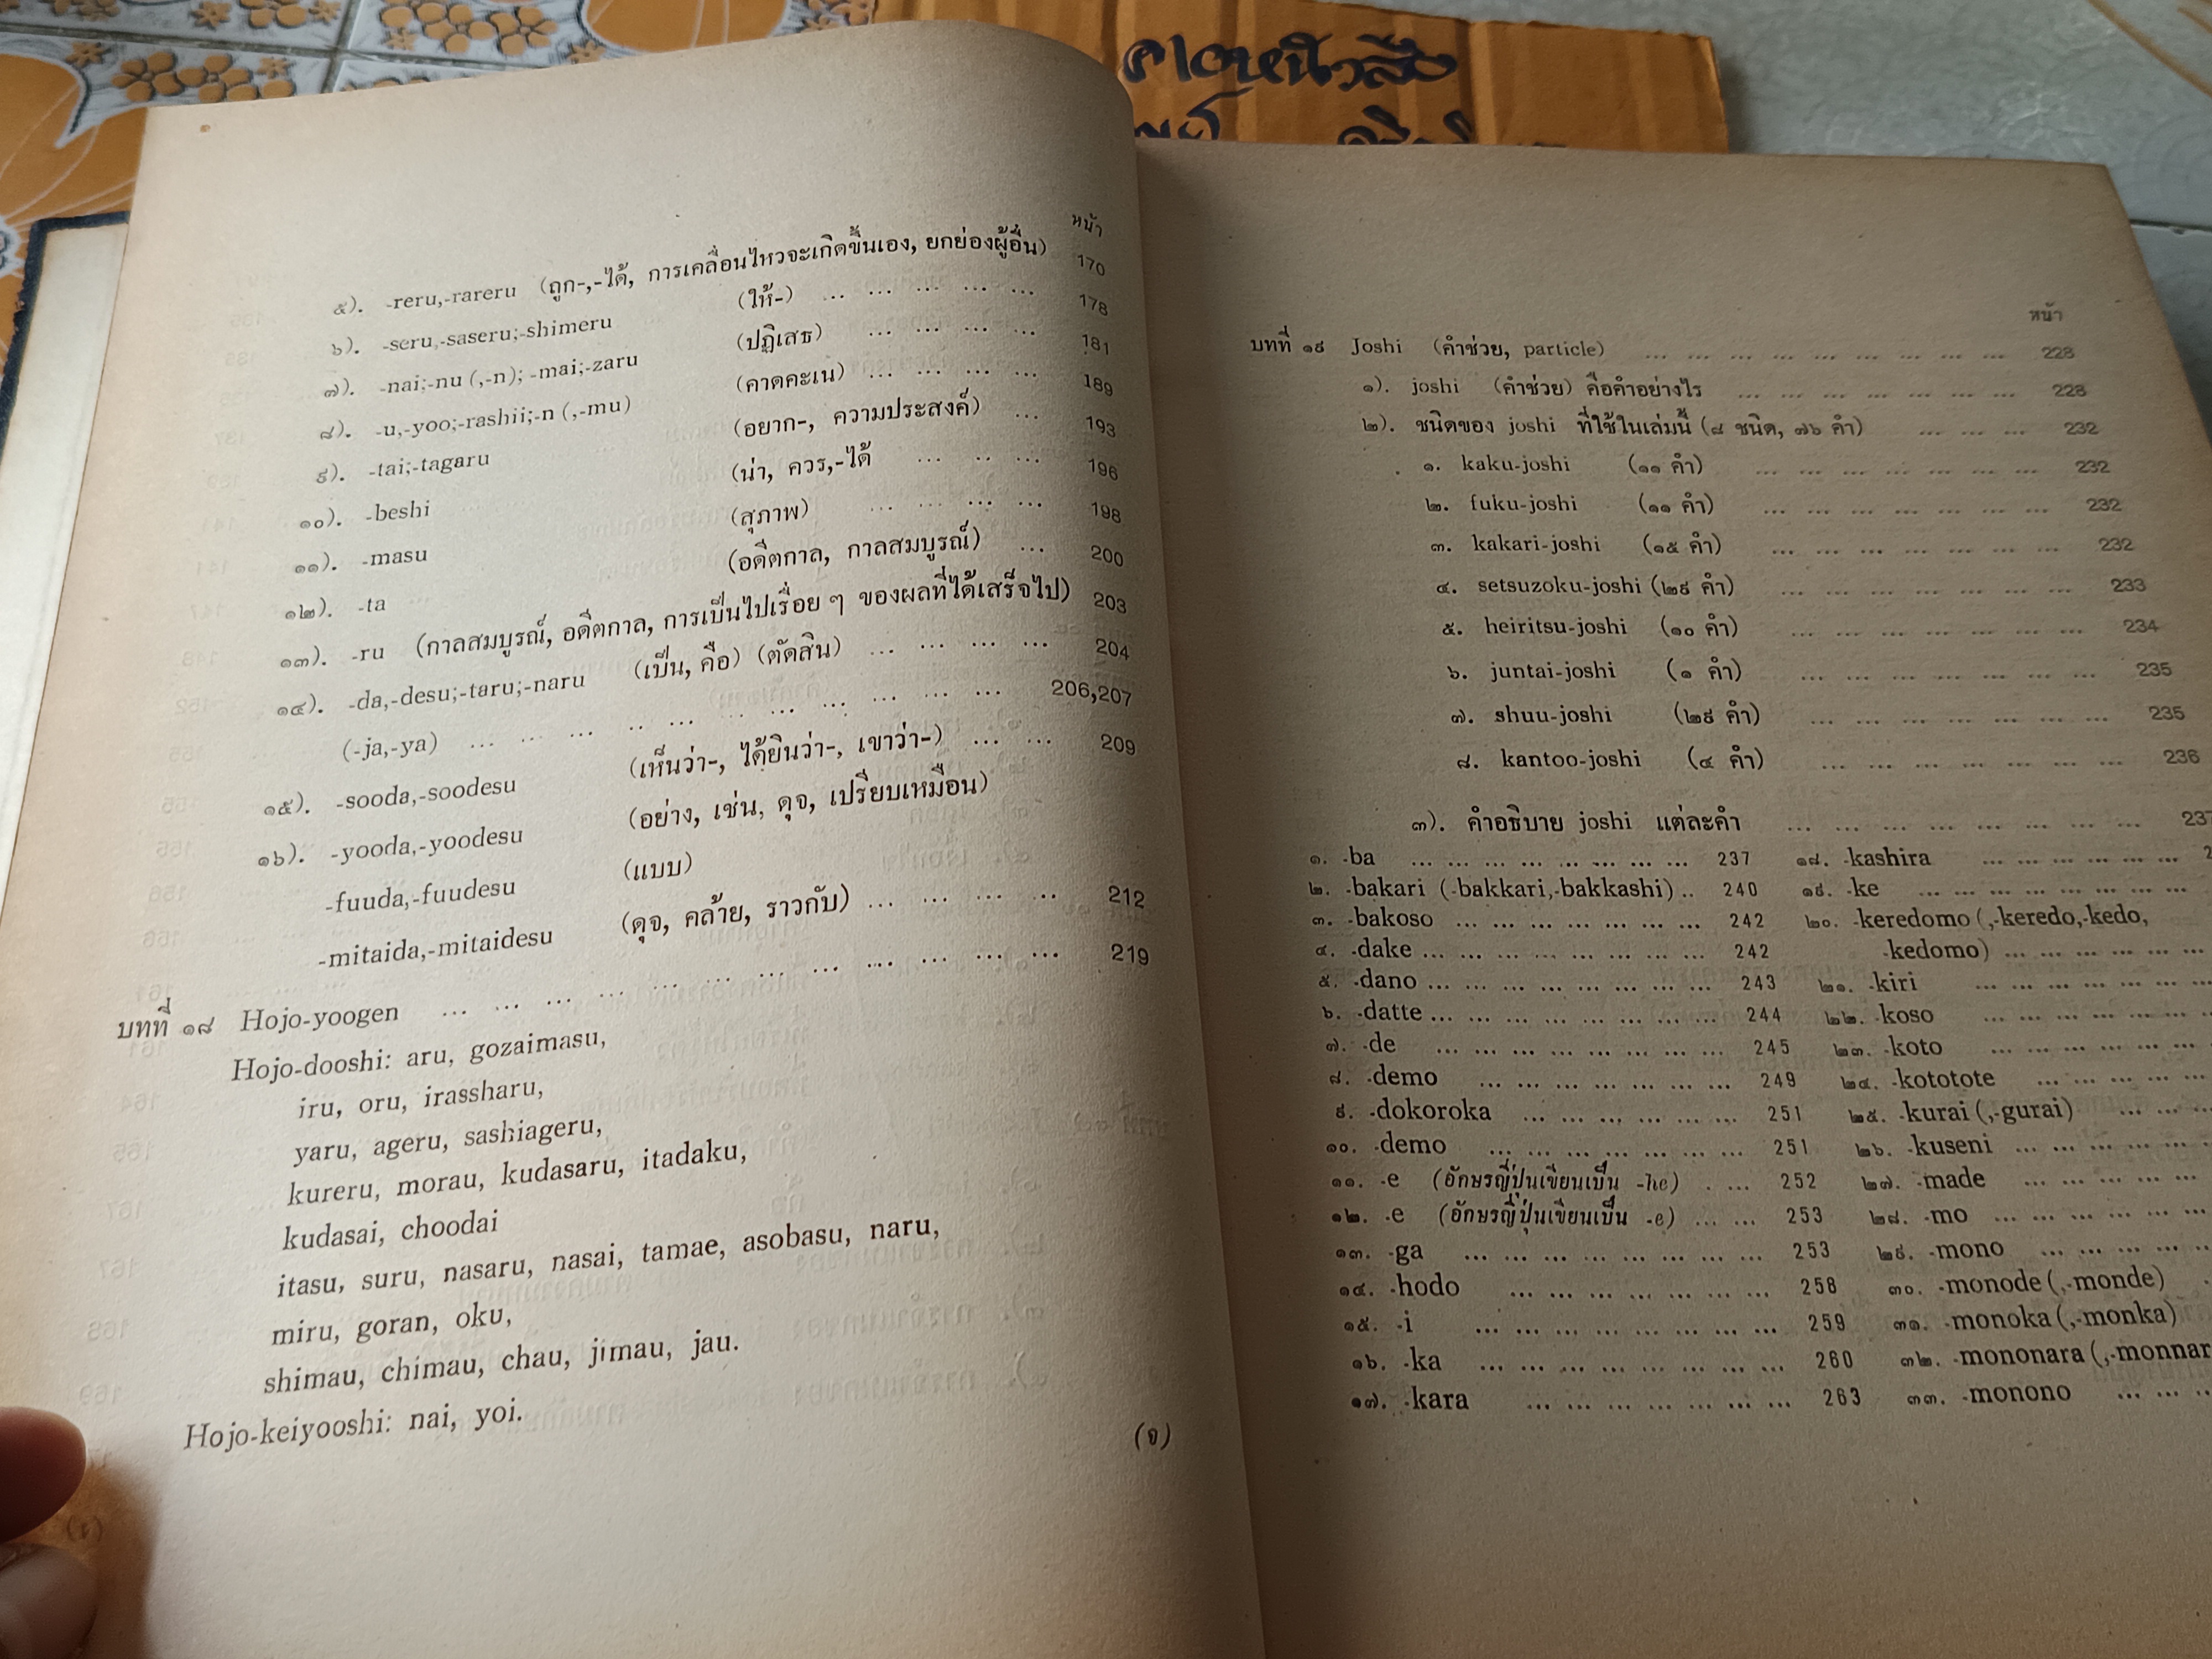 คาวหนิวสือ
หน้า
๕). -reru,-rareru (ถูก-,-ได้, การเคลื่อนไหวจะเกิดขึ้นเอง, ยกย่องผู้อื่น) 170
๖). -seru,-saseru;-shimeru (ให้-) ... ... ... ... ... 178
๗). -nai;-nu (,-n); -mai;-zaru (ปฏิเสธ) ... ... ... ... 181
๘). -u,-yoo;-rashii;-n (,-mu) (คาดคะเน) ... ... ... ... 189
๙). -tai;-tagaru (อยาก-, ความประสงค์) ... 193
๑๐). -beshi (น่า, ควร,-ได้ ... .. ... 196
๑๑). -masu (สุภาพ) ... ... ... ... 198
๑๒). -ta (อดีตกาล, กาลสมบูรณ์) ... 200
๑๓). -ru (กาลสมบูรณ์, อดีตกาล, การเป็นไปเรื่อย ๆ ของผลที่ได้เสร็จไป) 203
๑๔). -da,-desu;-taru;-naru (เป็น, คือ) (ตัดสิน) ... ... ... ... 204
(-ja,-ya) ... ... ... .. ... ... ... ... ... ... 206,207
๑๕). -sooda,-soodesu (เห็นว่า-, ได้ยินว่า-, เขาว่า-) ... ... 209
๑๖). -yooda,-yoodesu (อย่าง, เช่น, ดุจ, เปรียบเหมือน)
-fuuda,-fuudesu (แบบ)
-mitaida,-mitaidesu (ดุจ, คล้าย, ราวกับ) ... ... ... ... 212
บทที่ ๑๘ Hojo-yoogen ... ... ... ... ... ... ... ... ... ... ... ... 219
Hojo-dooshi: aru, gozaimasu,
iru, oru, irassharu,
yaru, ageru, sashiageru,
kureru, morau, kudasaru, itadaku,
kudasai, choodai
itasu, suru, nasaru, nasai, tamae, asobasu, naru,
miru, goran, oku,
shimau, chimau, chau, jimau, jau.
Hojo-keiyooshi: nai, yoi.
(จ)
หน้า
บทที่ ๑๙ Joshi (คำช่วย, particle) ... ... ... ... ... ... ... ... ... 228
๑). joshi (คำช่วย) คือคำอย่างไร ... ... ... ... ... ... ... 228
๒). ชนิดของ joshi ที่ใช้ในเล่มนี้ (๘ ชนิด, ๗๖ คำ) ... ... ... 232
๑. kaku-joshi (๑๑ คำ) ... ... ... ... ... ... ... 232
๒. fuku-joshi (๑๑ คำ) ... ... ... ... ... ... ... 232
๓. kakari-joshi (๑๕ คำ) ... ... ... ... ... ... ... 232
๔. setsuzoku-joshi (๒๙ คำ) ... ... ... ... ... ... ... 233
๕. heiritsu-joshi (๑๐ คำ) ... ... ... ... ... ... ... 234
๖. juntai-joshi (๑ คำ) ... ... ... ... ... ... ... 235
๗. shuu-joshi (๒๙ คำ) ... ... ... ... ... ... ... 235
๘. kantoo-joshi (๔ คำ) ... ... ... ... ... ... ... 236
๓). คำอธิบาย joshi แต่ละคำ ... ... ... ... ... ... ... ... 237
๑. -ba ... ... ... ... ... ... ... ... 237
๒. -bakari (-bakkari,-bakkashi) .. 240
๓. -bakoso ... ... ... ... ... ... ... 242
๔. -dake ... ... ... ... ... ... ... ... 242
๕. -dano ... ... ... ... ... ... ... ... 243
๖. -datte ... ... ... ... ... ... ... ... 244
๗. -de ... ... ... ... ... ... ... ... 245
๘. -demo ... ... ... ... ... ... ... 249
๙. -dokoroka ... ... ... ... ... ... 251
๑๐. -demo ... ... ... ... ... ... ... 251
๑๑. -e (อักษรญี่ปุ่นเขียนเป็น -he) . ... 252
๑๒. -e (อักษรญี่ปุ่นเขียนเป็น -e) ... ... 253
๑๓. -ga ... ... ... ... ... ... ... ... 253
๑๔. -hodo ... ... ... ... ... ... ... 258
๑๕. -i ... ... ... ... ... ... ... ... 259
๑๖. -ka ... ... ... ... ... ... ... ... 260
๑๗. -kara ... ... ... ... ... ... ... 263
๑๘. -kashira ... ... ... ... ...
๑๙. -ke ... ... ... ... ... ... ...
๒๐. -keredomo (,-keredo,-kedo,
-kedomo) ... ... ... ... ...
๒๑. -kiri ... ... ... ... ... ...
๒๒. -koso ... ... ... ... ... ...
๒๓. -koto ... ... ... ... ...
๒๔. -kototote ... ... ... ...
๒๕. -kurai (,-gurai) ... ...
๒๖. -kuseni ... ... ... ... ...
๒๗. -made ... ... ... ...
๒๘. -mo ... ... ... ... ...
๒๙. -mono ... ... ... ...
๓๐. -monode (,-monde)
๓๑. -monoka (,-monka)
๓๒. -mononara (,-monnar
๓๓. -monono ... ... ...